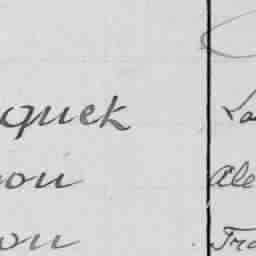 quek La
ou Ale
ou Fra